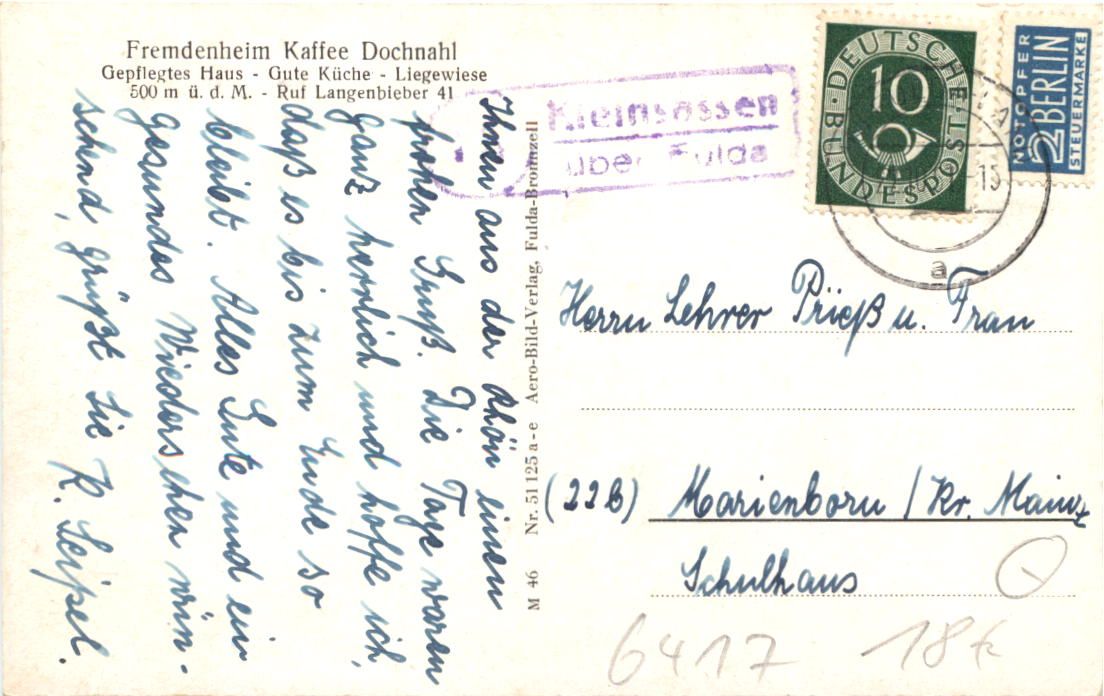 Fremdenheim Kaffee Dochnahl
Gepflegtes Haus - Gute Küche - Liegewiese
500 m ü. d. M. - Ruf Langenbieber 41
Ihnen aus der Rhön einen
frohen Gruß. Die Tage waren
ganz herrlich und hoffe ich,
daß es bis zum Ende so
bleibt. Alles Gute und ein
gesundes Wiedersehen wün-
schend, grüßt Sie K. Seipel.
M 46 Nr. 51125 a-e Aero-Bild-Verlag, Fulda-Bronnzell
Kleinsassen
über Fulda
DEUTSCHE BUNDESPOST
10
NOTOPFER
2 BERLIN
STEUERMARKE
-15
a
Herrn Lehrer Prieß u. Frau
(22b) Marienborn / Kr. Mainz
Schulhaus
6417 18€